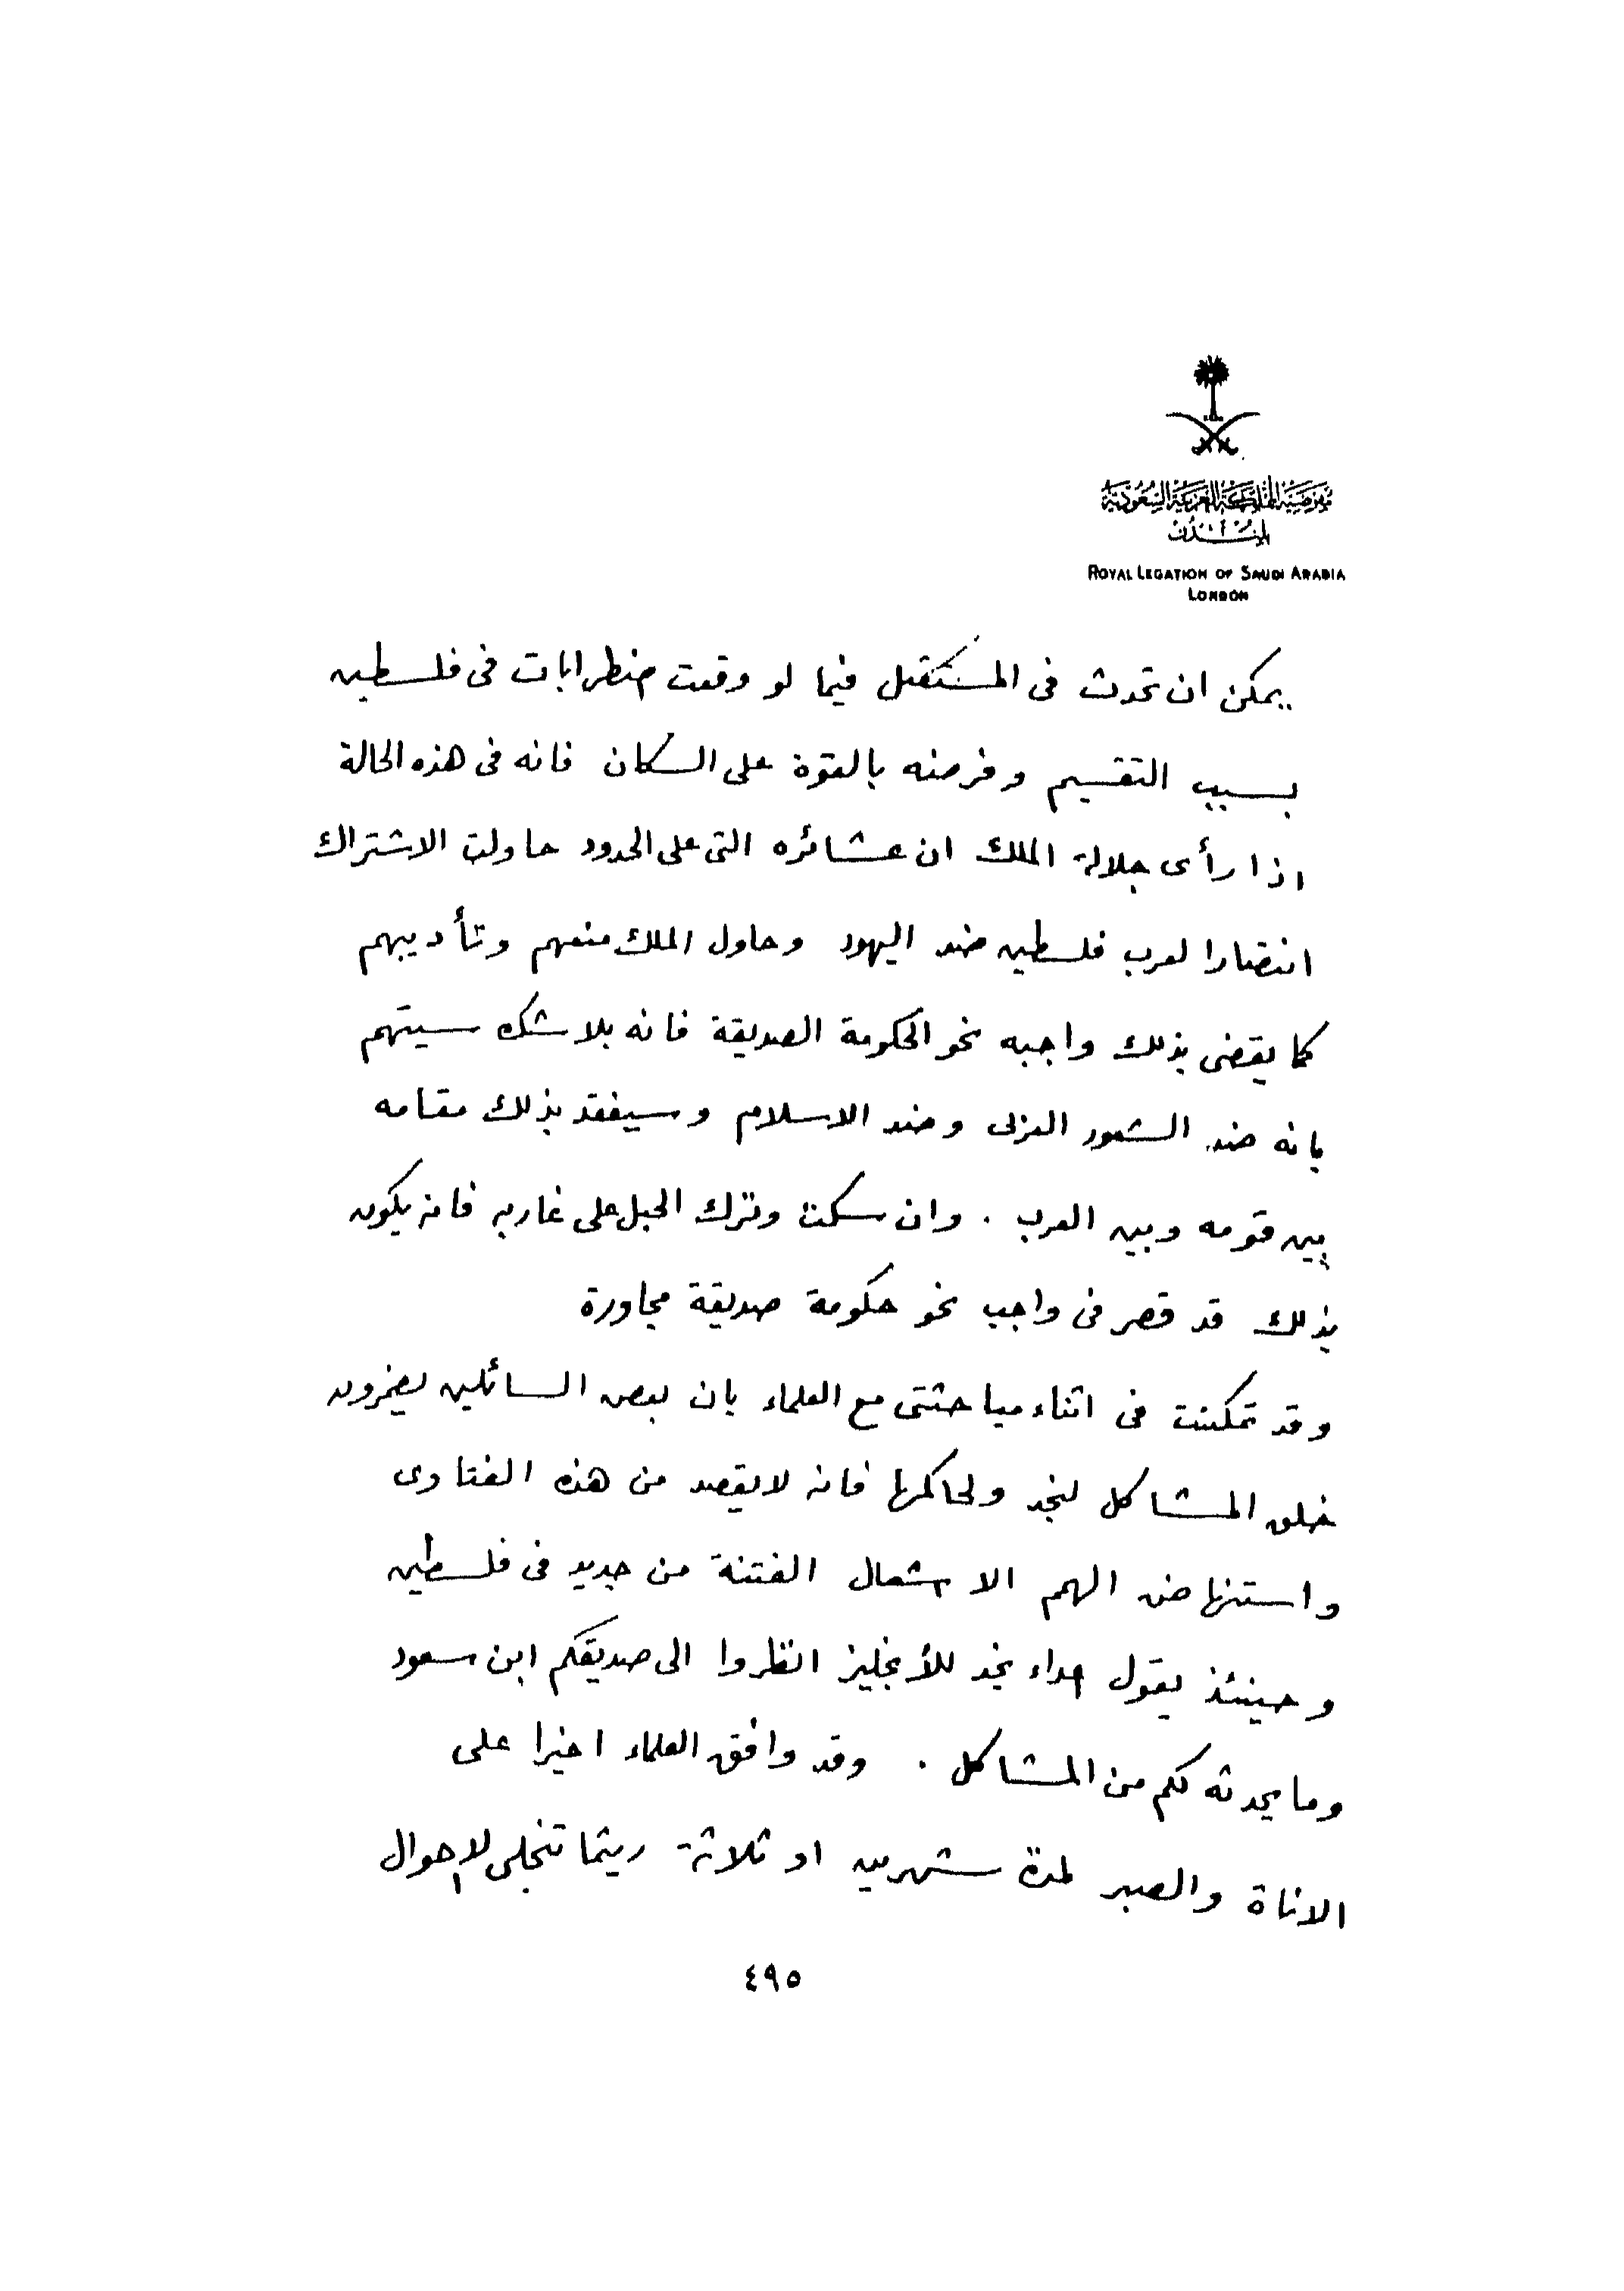 مفوضية المملكة العربية السعودية
بلندن
ROYAL LEGATION OF SAUDI ARABIA
LONDON
يمكن ان تحدث فى المستقبل فيما لو وقعت اضطرابات فى فلسطين
بسبب التقسيم وفرضه بالقوة على السكان فانه فى هذه الحالة
اذا رأى جلالة الملك ان عشائره التى على الحدود حاولت الاشتراك
انتصارا لعرب فلسطين ضد اليهود وحاول الملك منعهم وتأديبهم
كما يقضى بذلك واجبه نحو الحكومة الصديقة فانه بلا شك سيتهم
بانه ضد الشعور العربى وضد الاسلام وسيفقد بذلك مقامه
بين قومه وبين العرب . وان سكت وترك الحبل على غاربه فانه يكون
بذلك قد قصر فى واجب نحو حكومة صديقة مجاورة
وقد تمكنت فى اثناء مباحثتى مع العلماء بان بعض السائلين يضمرون
خلق المشاكل لنجد ولحاكمها فانه لايقصد من هذه الفتاوى
واستنهاض الهمم الا اشعال الفتنة من جديد فى فلسطين
وحينئذ يقول اعداء نجد للأنجليز انظروا الى صديقكم ابن سعود
وما يحدثه لكم من المشاكل . وقد وافق العلماء اخيرا على
الاناة والصبر لمدة شهرين او ثلاثة ريثما تنجلى الاحوال
٤٩٥